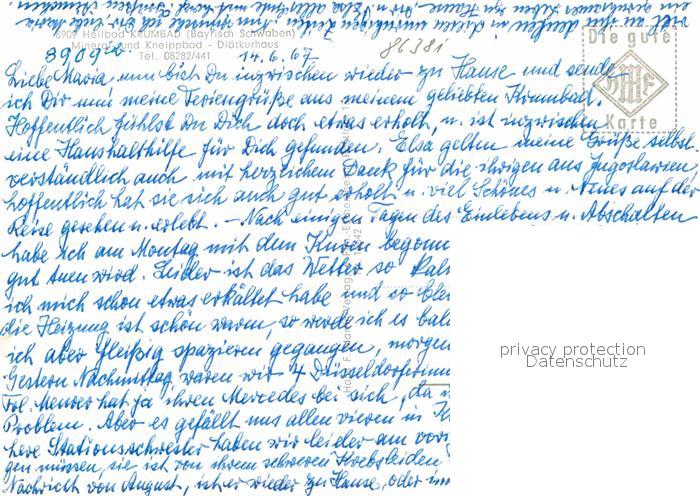 viel an Dich denken in diesen unruhigen Zeiten
6909 Heilbad KRUMBAD (Bayrisch Schwaben)
Mineral- und Kneippbad - Diätkurhaus
Tel. 08282/441
8909
14.6.67
86381
Die gute
Karte
Liebe Maria, nun bist Du inzwischen wieder zu Hause und sende
ich Dir nun meine Feriengrüße aus meinem geliebten Krumbad.
Hoffentlich fühlst Du Dich doch etwas erholt, u. ist inzwischen
eine Haushalthilfe für Dich gefunden. Elsa gelten meine Grüße selbst-
verständlich auch mit herzlichem Dank für die ihrigen aus Jugoslawien,
hoffentlich hat sie sich auch gut erholt u. viel Schönes u. Neues auf der
Reise gesehen u. erlebt. – Nach einigen Tagen des Einlebens u. Abschalten
habe ich am Montag mit dem Kuren begonn
gut tuen wird. Leider ist das Wetter so kal
ich mich schon etwas erkältet habe und so blei
die Heizung ist schön warm, so werde ich es bal
ich aber fleißig spazieren gegangen, morgen
Gestern Nachmittag waren wir 4 Düsseldorferinn
Frl. Meurer hat ja ihren Mercedes bei sich, da
Problem. Aber es gefällt uns allen vieren in K
here Stationsschwester haben wir leider am vori
gen müssen, sie ist von ihrem schweren Krebsleiden
Nachricht von August, ist er wieder zu Hause, oder im
privacy protection
Datenschutz